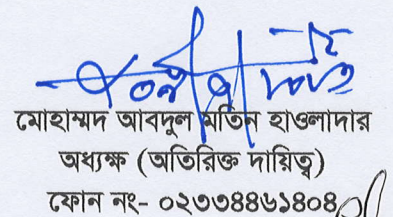 মোহাম্মদ আবদুল মতিন হাওলাদার
অধ্যক্ষ (অতিরিক্ত দায়িত্ব)
ফোন নং- ০২৩৩৪৪৬১৪০৪